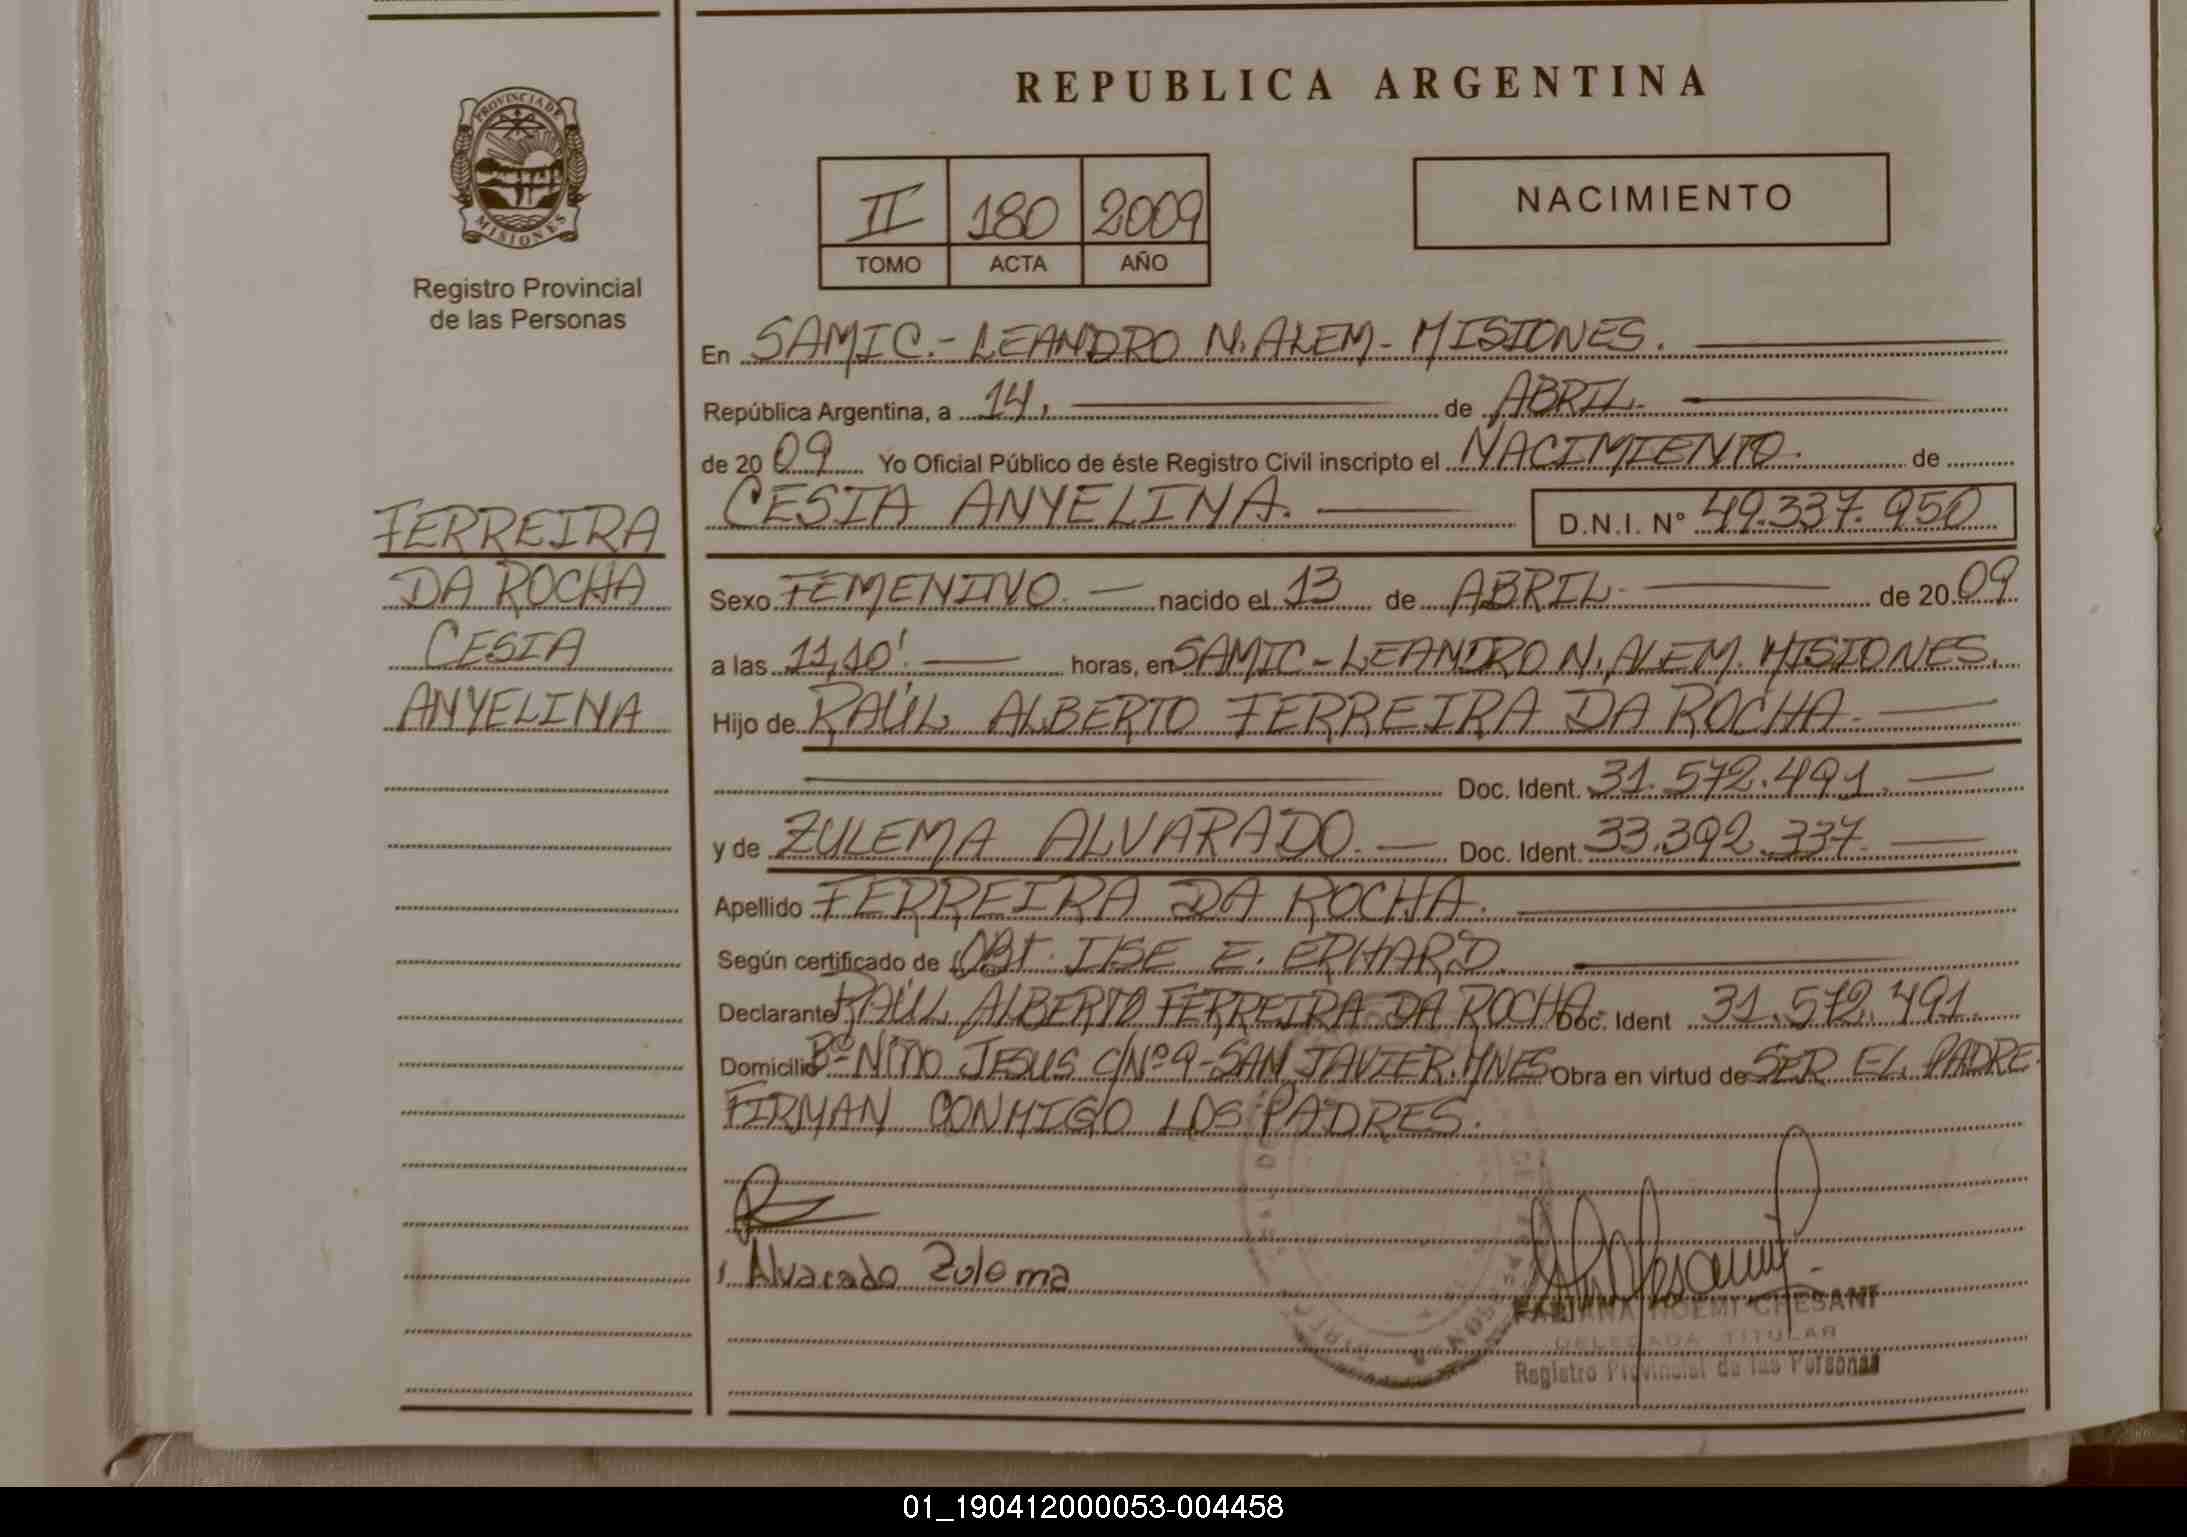 REPUBLICA ARGENTINA
PROVINCIA DE
MISIONES
Registro Provincial
de las Personas
II 180 2009
TOMO ACTA AÑO
NACIMIENTO
En SAMIC.- LEANDRO N. ALEM - MISIONES.
República Argentina, a 14. de ABRIL
de 2009 Yo Oficial Público de éste Registro Civil inscripto el NACIMIENTO. de
CESIA ANYELINA. D.N.I. N° 49.337.950
FERREIRA
DA ROCHA
CESIA
ANYELINA
Sexo FEMENINO. nacido el 13 de ABRIL de 2009
a las 11,10'. horas, en SAMIC - LEANDRO N. ALEM. MISIONES.
Hijo de RAÚL ALBERTO FERREIRA DA ROCHA.
Doc. Ident. 31.572.491.
y de ZULEMA ALVARADO. Doc. Ident. 33.392.337.
Apellido FERREIRA DA ROCHA.
Según certificado de OBT. E. ERHARD.
Declarante RAÚL ALBERTO FERREIRA DA ROCHA. Doc. Ident 31.572.491.
Domicilio B° NIÑO JESUS C/N° 9 - SAN JAVIER. MNES Obra en virtud de SER EL PADRE.
FIRMAN CONMIGO LOS PADRES.
Alvarado Zulema
FABIANA NOEMI CHESANI
DELEGADA TITULAR
Registro Provincial de las Personas
01_190412000053-004458